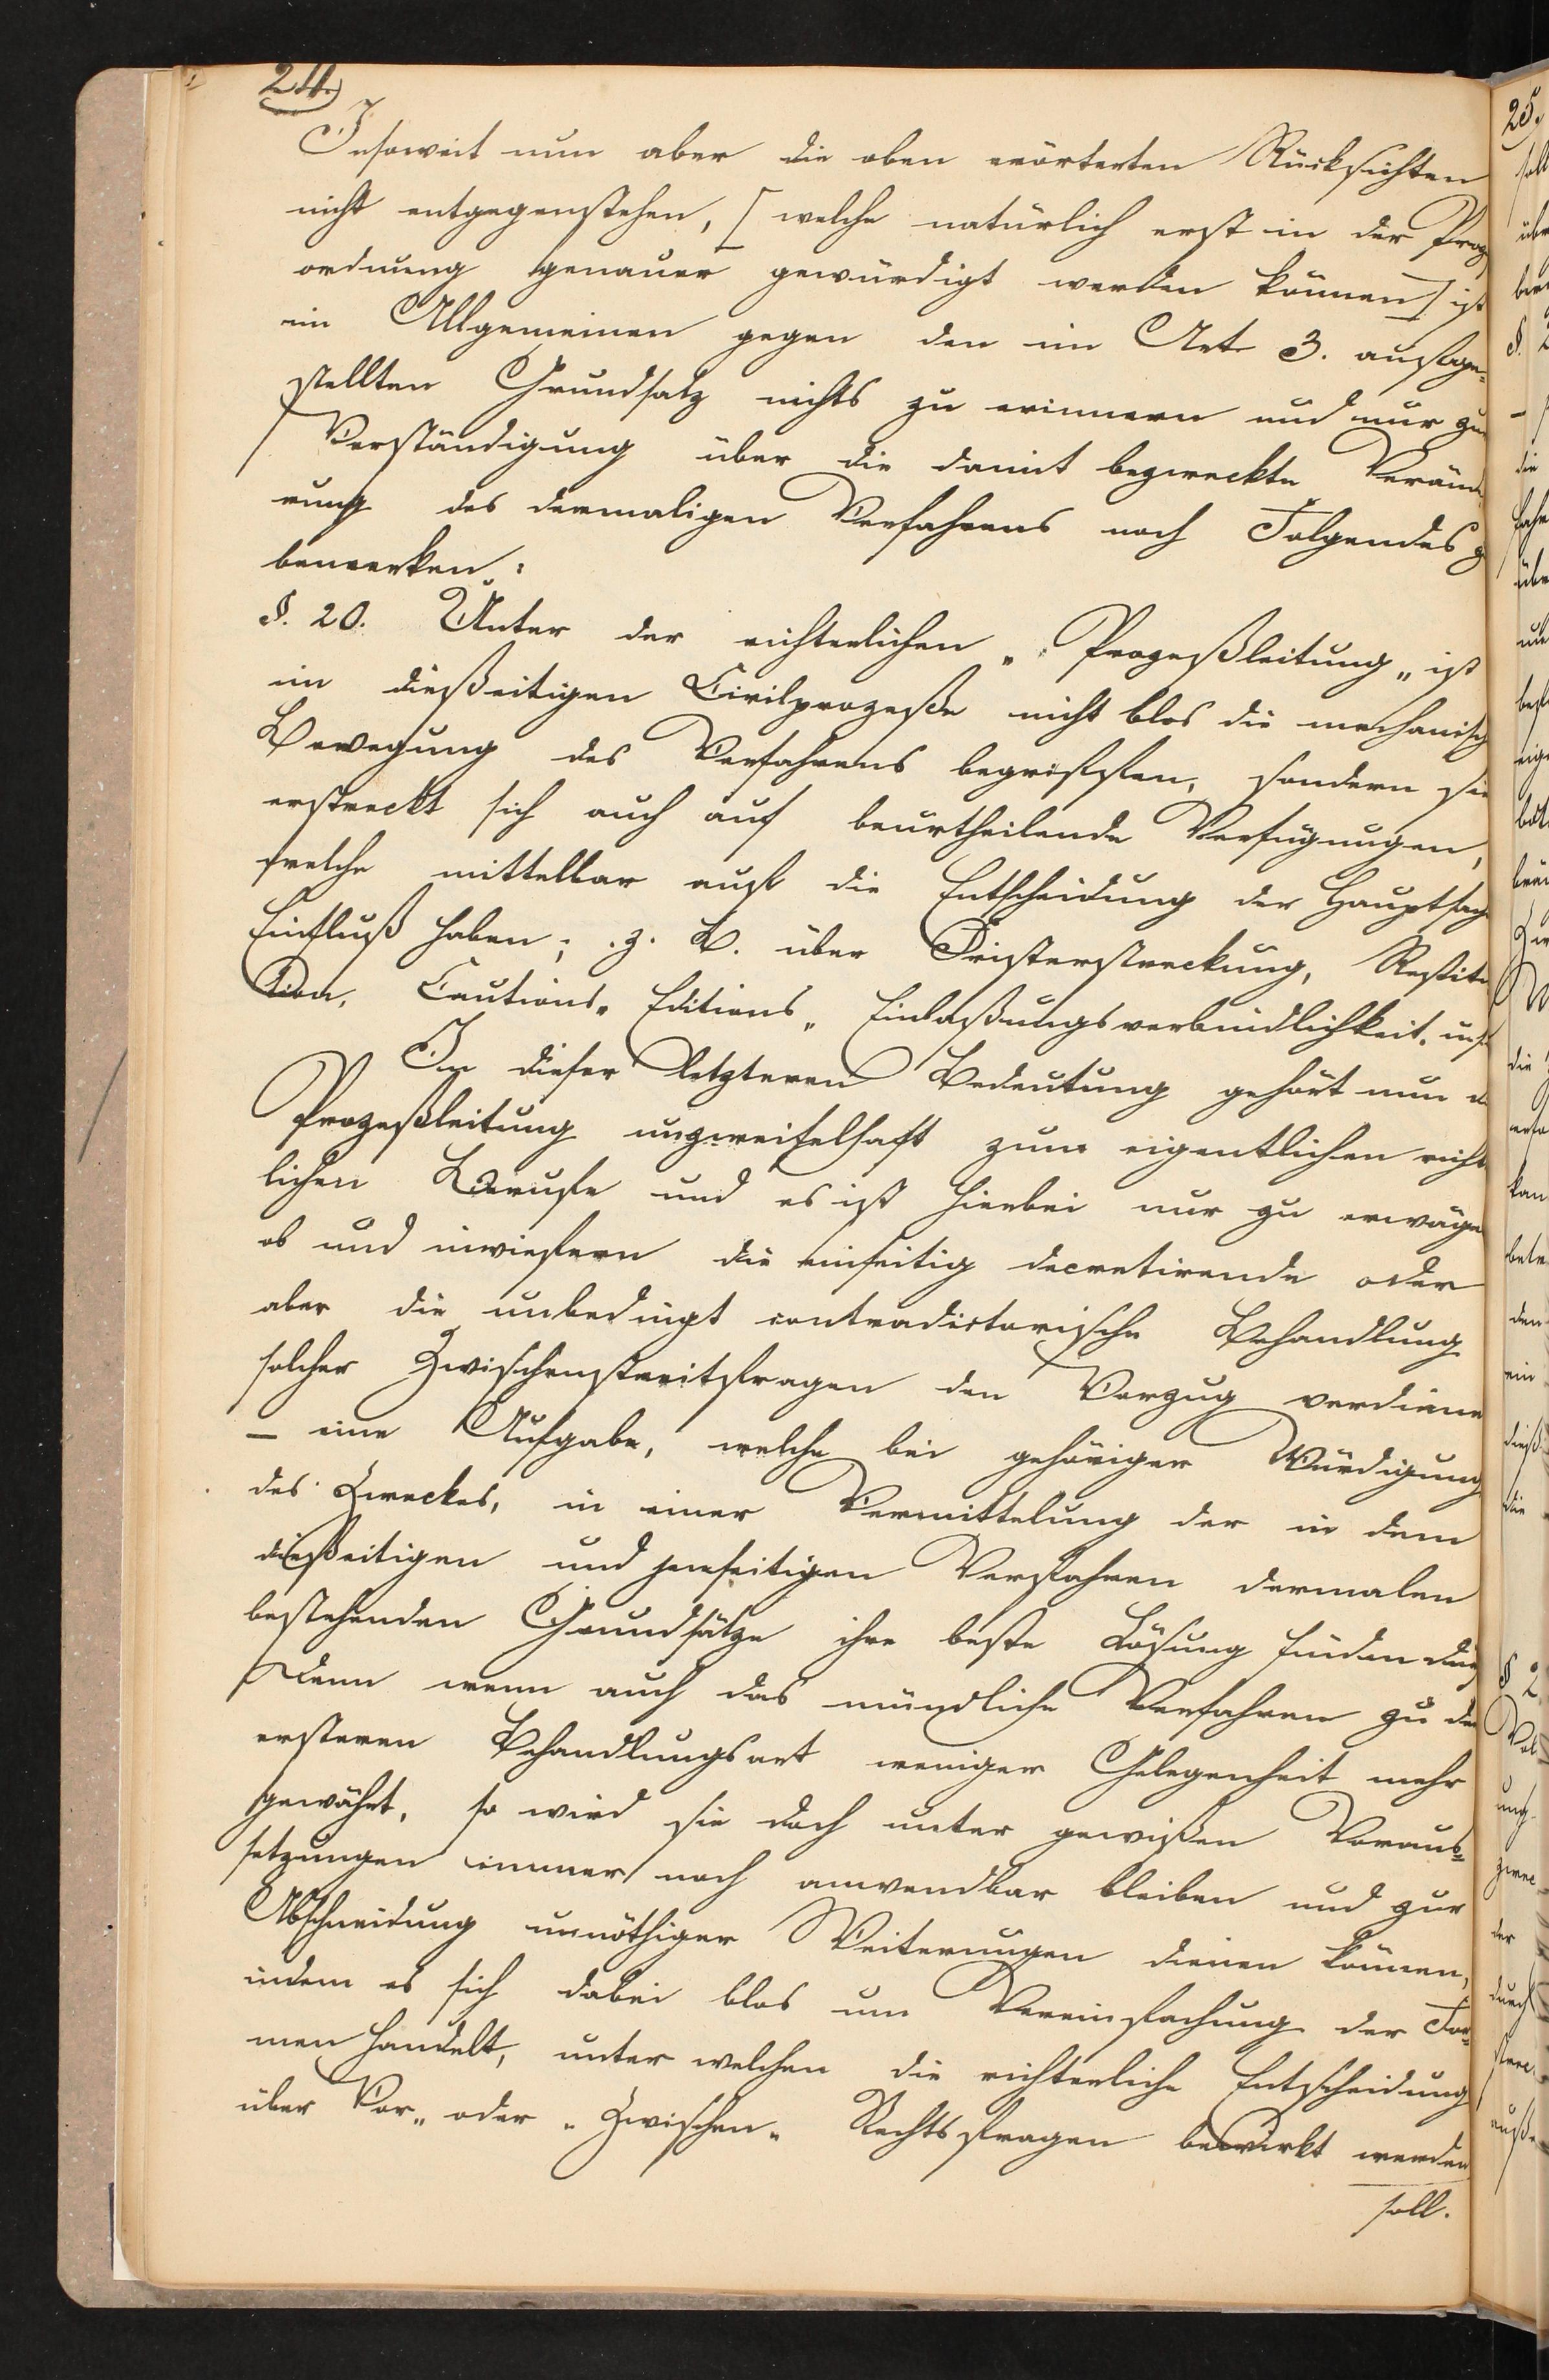 24.)
Insoweit nun aber die oben erörterten Rücksichten
nicht entgegenstehen, [welche natürlich erst in der Proz
ordnung genauer gewürdigt werden können] ist
im Allgemeinen gegen den im Art. 3. aufge-
stellten Grundsatz nichts zu erinnern und nur zur
Verständigung über die damit bezweckte Verände
rung des dermaligen Verfahrens noch Folgendes z
bemerken:
§. 20. Unter der richterlichen „Prozeßleitung„ ist
im dießeitigen Civilprozeße nicht blos die mechanisch
Bewegung des Verfahrens begriffen, sondern sie
erstreckt sich auch auf beurtheilende Verfügungen,
welche mittelbar auf die Entscheidung der Hauptsach
Einfluß haben; z. B. über Fristerstreckung, Restitu
tion, Cautions„ Editions„ Einlaßungsverbindlichkeit. us
In dieser letzteren Bedeutung gehört nun d
Prozeßleitung unzweifelhaft zum eigentlichen richt
lichen Berufe und es ist hierbei nur zu erwäge
ob und inwiefern die einseitig decretirende oder
aber die unbedingt contradictorische Behandlung
solcher Zwischenstreitfragen den Vorzug verdiene
– eine Aufgabe, welche bei gehöriger Würdigung
des Zweckes, in einer Vermittelung der in dem
dießeitigen und jenseitigen Verfahren dermalen
bestehenden Grundsätze ihre beste Lösung finden dürf
Denn wenn auch das mündliche Verfahren zu der
ersteren Behandlungsart weniger Gelegenheit mehr
gewährt, so wird sie doch unter gewißen Voraus-
setzungen immer noch anwendbar bleiben und zur
Abschneidung unnöthiger Weiterungen dienen können,
indem es sich dabei blos um Vereinfachung der For-
men handelt, unter welchen die richterliche Entscheidung
über Vor„ oder „Zwischen„ Rechtsfragen bewirkt werden
soll.